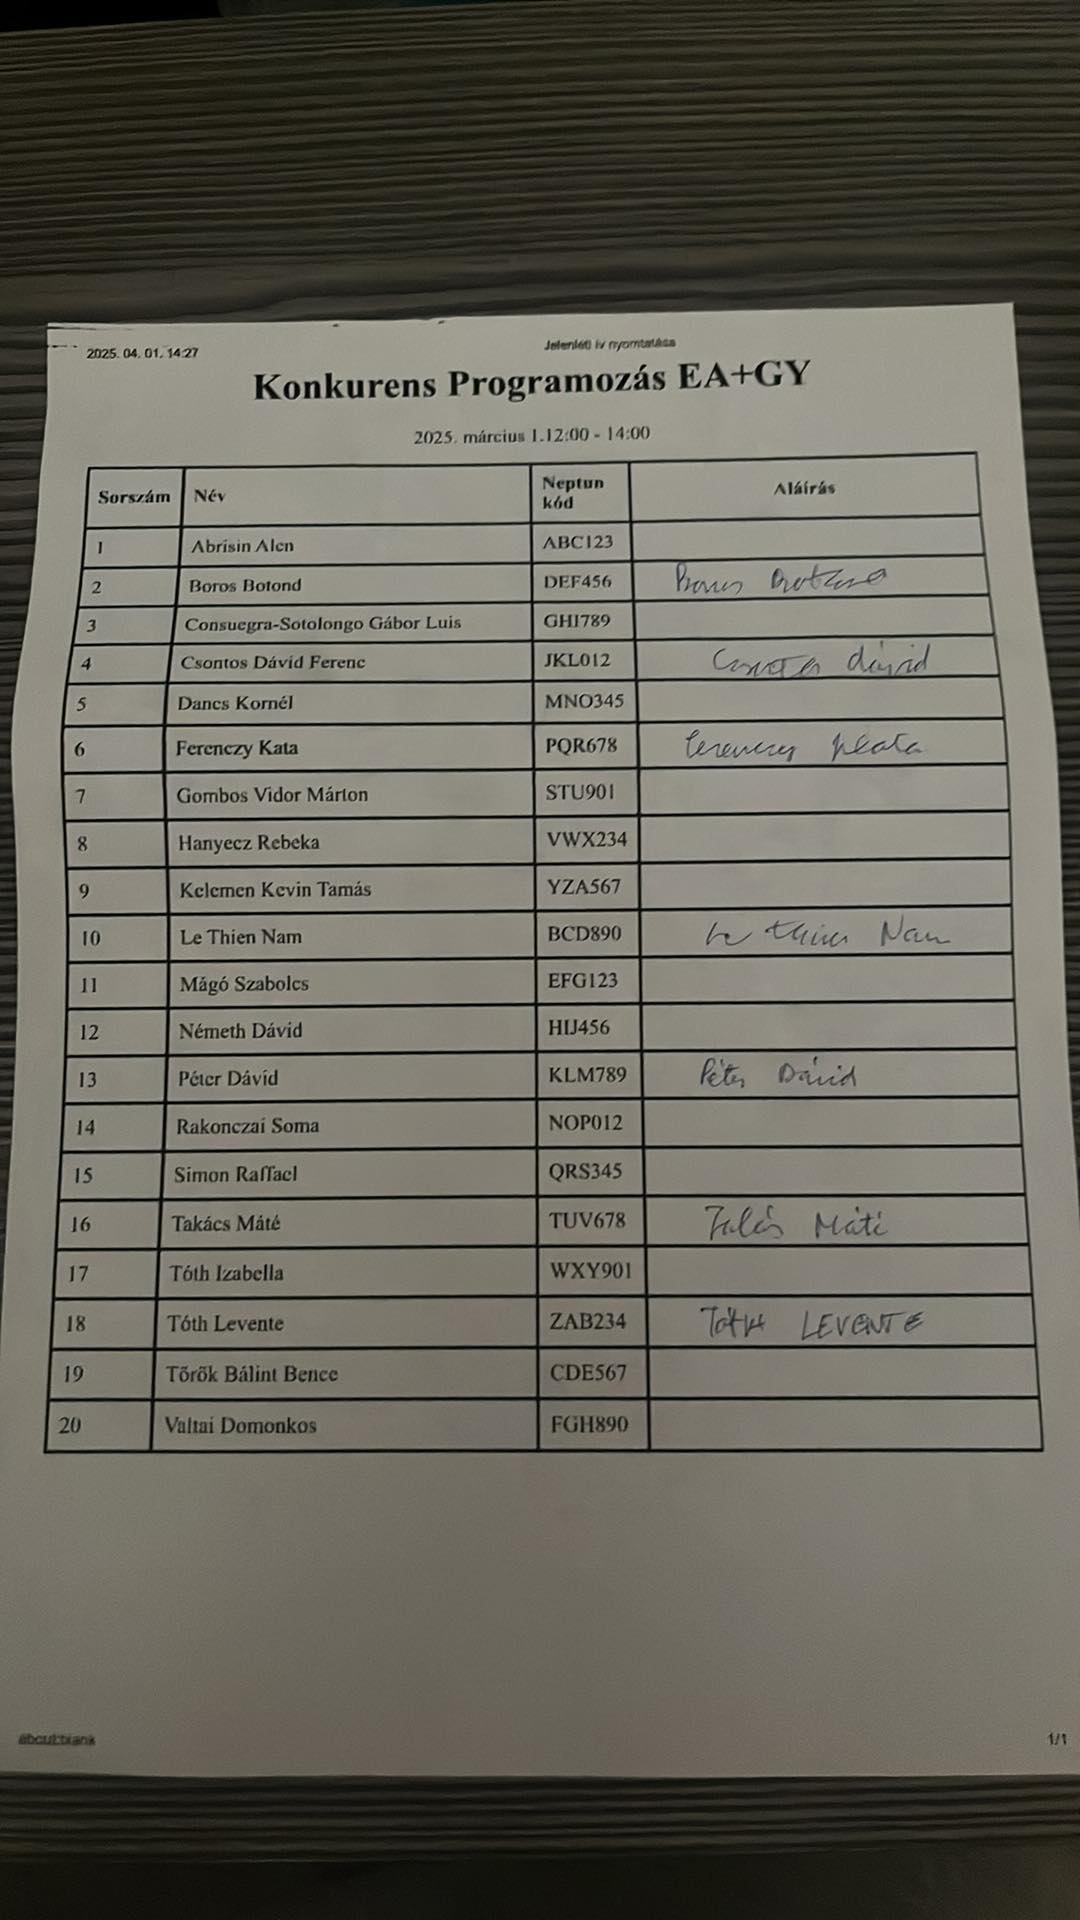 2025. 04. 01. 14:27 Jelenléti ív nyomtatása
Konkurens Programozás EA+GY
2025. március 1.12:00 - 14:00
Sorszám Név Neptun kód Aláírás
1 Abrisin Alen ABC123
2 Boros Botond DEF456 Boros Botond
3 Consuegra-Sotolongo Gábor Luis GHI789
4 Csontos Dávid Ferenc JKL012 Csontos dávid
5 Dancs Kornél MNO345
6 Ferenczy Kata PQR678 Ferenczy Kata
7 Gombos Vidor Márton STU901
8 Hanyecz Rebeka VWX234
9 Kelemen Kevin Tamás YZA567
10 Le Thien Nam BCD890 Le thien Nam
11 Mágó Szabolcs EFG123
12 Németh Dávid HIJ456
13 Péter Dávid KLM789 Péter Dávid
14 Rakonczai Soma NOP012
15 Simon Raffael QRS345
16 Takács Máté TUV678 Máté
17 Tóth Izabella WXY901
18 Tóth Levente ZAB234 TóTH LEVENTE
19 Török Bálint Bence CDE567
20 Valtai Domonkos FGH890
about:blank 1/1